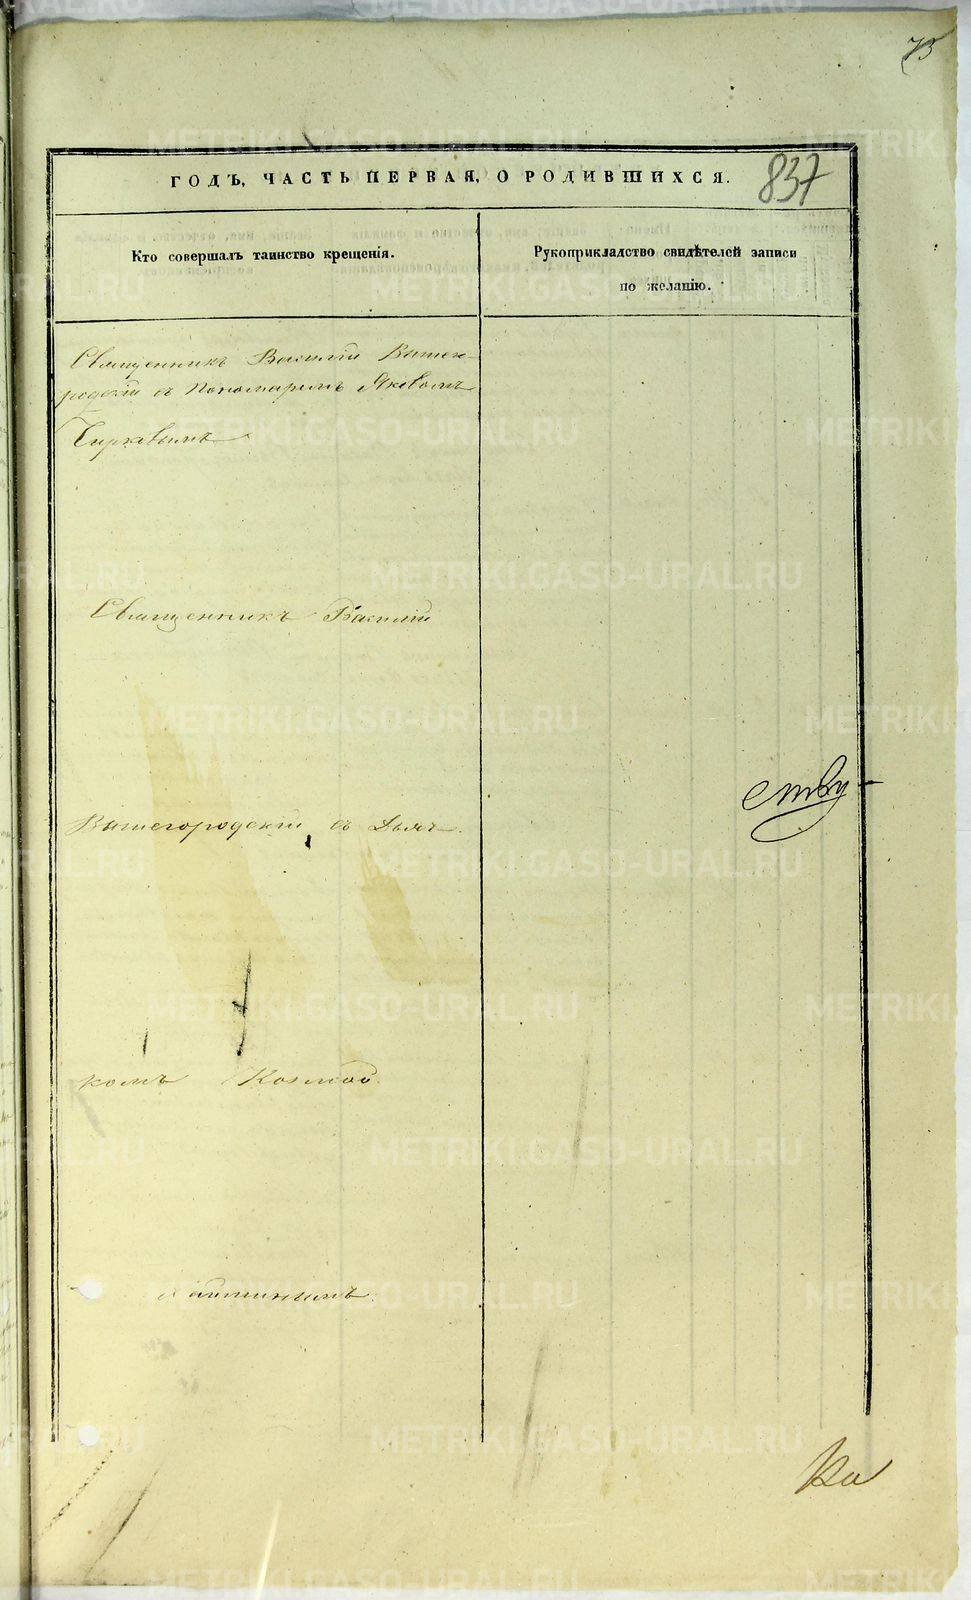 75
ГОДЪ, ЧАСТЬ ПЕРВАЯ, О РОДИВШИХСЯ.
837
Кто совершалъ таинство крещенія.
Рукоприкладство свидѣтелей записи
по желанію.
Священникъ Василій Вышего-
родскій съ Пономаремъ Яковомъ
Чирковымъ
Священникъ Василій
Вышегородскій съ Дьяч-
комъ Козмой
ству
METRIKI.GASO-URAL.RU